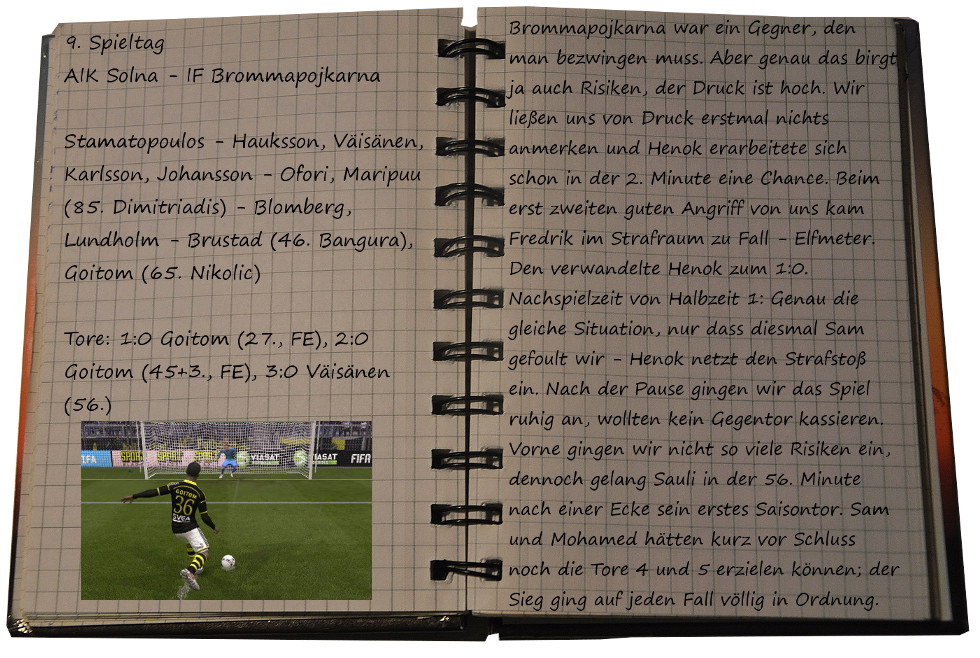 9. Spieltag
AIK Solna - IF Brommapojkarna
Stamatopoulos - Hauksson, Väisänen,
Karlsson, Johansson - Ofori, Maripuu
(85. Dimitriadis) - Blomberg,
Lundholm - Brustad (46. Bangura),
Goitom (65. Nikolic)
Tore: 1:0 Goitom (27., FE), 2:0
Goitom (45+3., FE), 3:0 Väisänen
(56.)
VIASAT
VIASAT
FIFA
GOITOM
36
Brommapojkarna war ein Gegner, den
man bezwingen muss. Aber genau das birgt
ja auch Risiken, der Druck ist hoch. Wir
ließen uns von Druck erstmal nichts
anmerken und Henok erarbeitete sich
schon in der 2. Minute eine Chance. Beim
erst zweiten guten Angriff von uns kam
Fredrik im Strafraum zu Fall - Elfmeter.
Den verwandelte Henok zum 1:0.
Nachspielzeit von Halbzeit 1: Genau die
gleiche Situation, nur dass diesmal Sam
gefoult wir - Henok netzt den Strafstoß
ein. Nach der Pause gingen wir das Spiel
ruhig an, wollten kein Gegentor kassieren.
Vorne gingen wir nicht so viele Risiken ein,
dennoch gelang Sauli in der 56. Minute
nach einer Ecke sein erstes Saisontor. Sam
und Mohamed hätten kurz vor Schluss
noch die Tore 4 und 5 erzielen können; der
Sieg ging auf jeden Fall völlig in Ordnung.